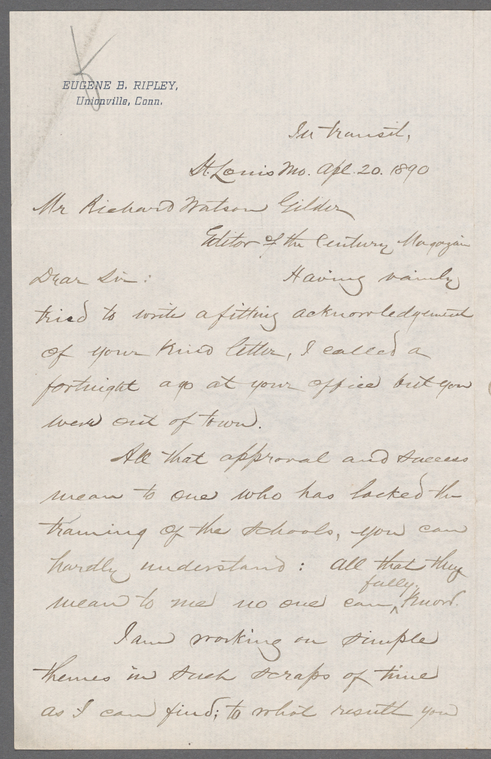 EUGENE B. RIPLEY,
Unionville, Conn.
In transit,
St. Louis Mo. Apl. 20. 1890
Mr Richard Watson Gilder
Editor of the Century Magazin
Dear Sir: Having vainly
tried to write a fitting acknowledgement
of your kind letter, I called a
fortnight ago at your office but you
were out of town.
All that approval and success
mean to one who has lacked the
training of the schools, you can
hardly understand: all that they
mean to me no one can ^ fully know.
I am working on simple
themes in such scraps of time
as I can find; to what result you